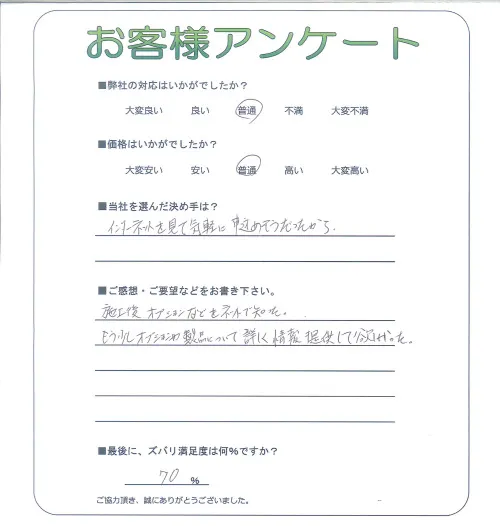 お客様アンケート
■弊社の対応はいかがでしたか?
大変良い 良い 普通 不満 大変不満
■価格はいかがでしたか?
大変安い 安い 普通 高い 大変高い
■当社を選んだ決め手は?
インターネットを見て気軽に申込めそうだったから.
■ご感想・ご要望などをお書き下さい。
施工後オプションなどをネットで知った。
もう少しオプションや製品について詳しく情報提供して欲しかった。
■最後に、ズバリ満足度は何%ですか?
70 %
ご協力頂き、誠にありがとうございました。